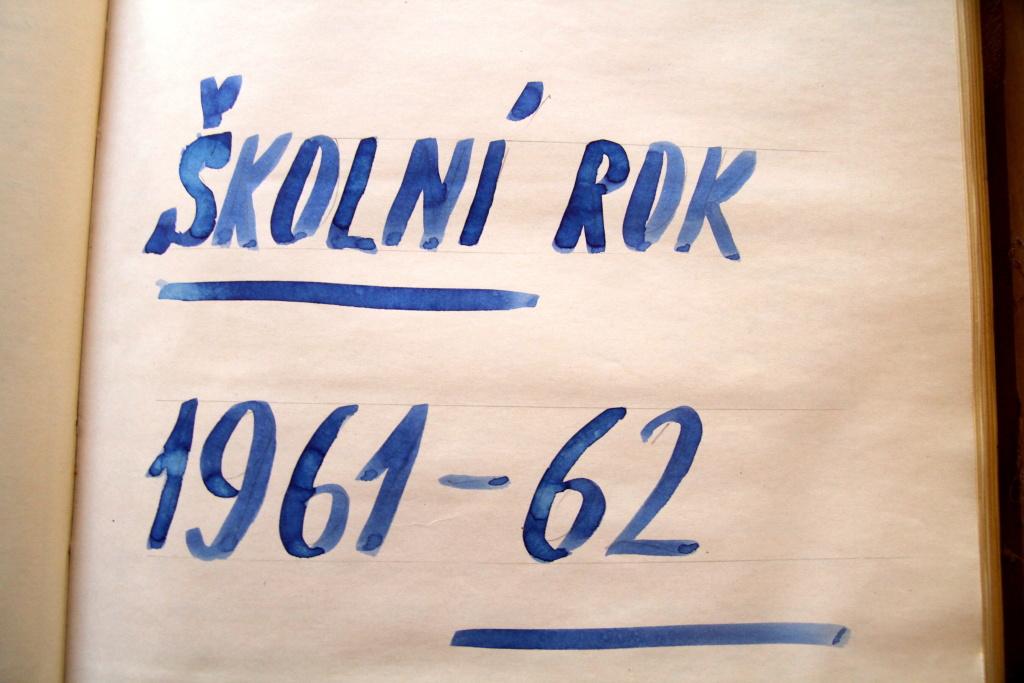 ŠKOLNÍ ROK
1961-62